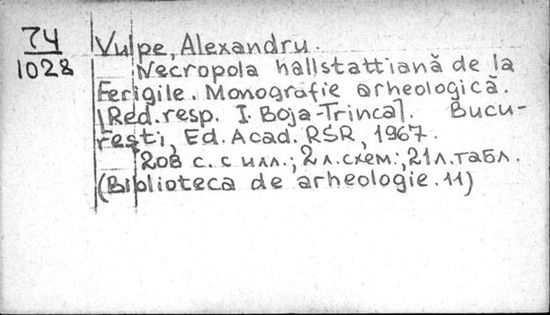 74
1028
Vulpe, Alexandru.
Necropola hallstattiană de la
Ferigile. Monografie arheologică.
[Red. resp. I. Boja-Trinca]. Bucu-
rești, Ed. Acad. RSR, 1967.
208 с. с илл.; 2 л. схем.; 21 л. табл.
(Biblioteca de arheologie. 11)